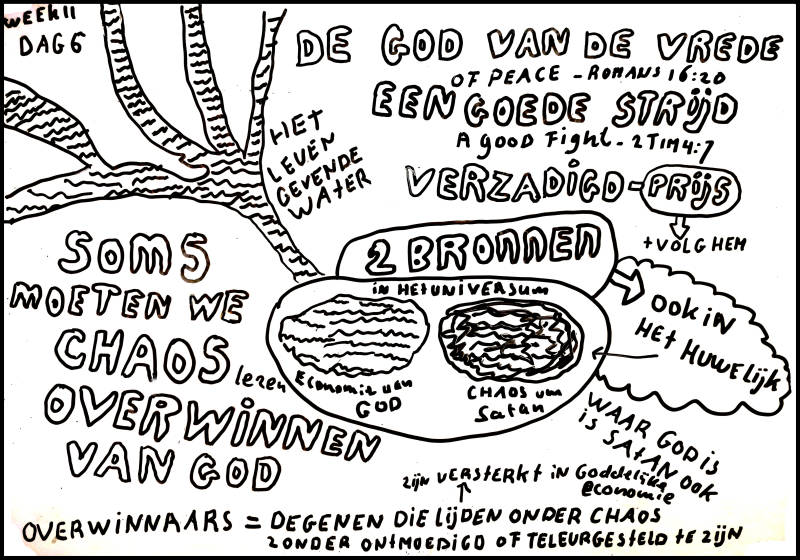 WEEK 11
DAG 6
DE GOD VAN DE VREDE
OF PEACE - ROMANS 16:20
EEN GOEDE STRIJD
A GOOD Fight - 2 TIM 4:7
VERZADIGD - PRIJS
+ VOLG HEM
HET
LEVEN
GEVENDE
WATER
2 BRONNEN
IN HET UNIVERSUM
Economie van
GOD
CHAOS van
Satan
OOK IN
HET HUWELIJK
SOMS
MOETEN WE
CHAOS lezen
OVERWINNEN
VAN GOD
WAAR GOD is
is SATAN OOK
zijn VERSTERKT in Goddelijke
economie
OVERWINNAARS = DEGENEN DIE LIJDEN ONDER CHAOS
ZONDER ONTMOEDIGD OF TELEURGESTELD TE ZIJN